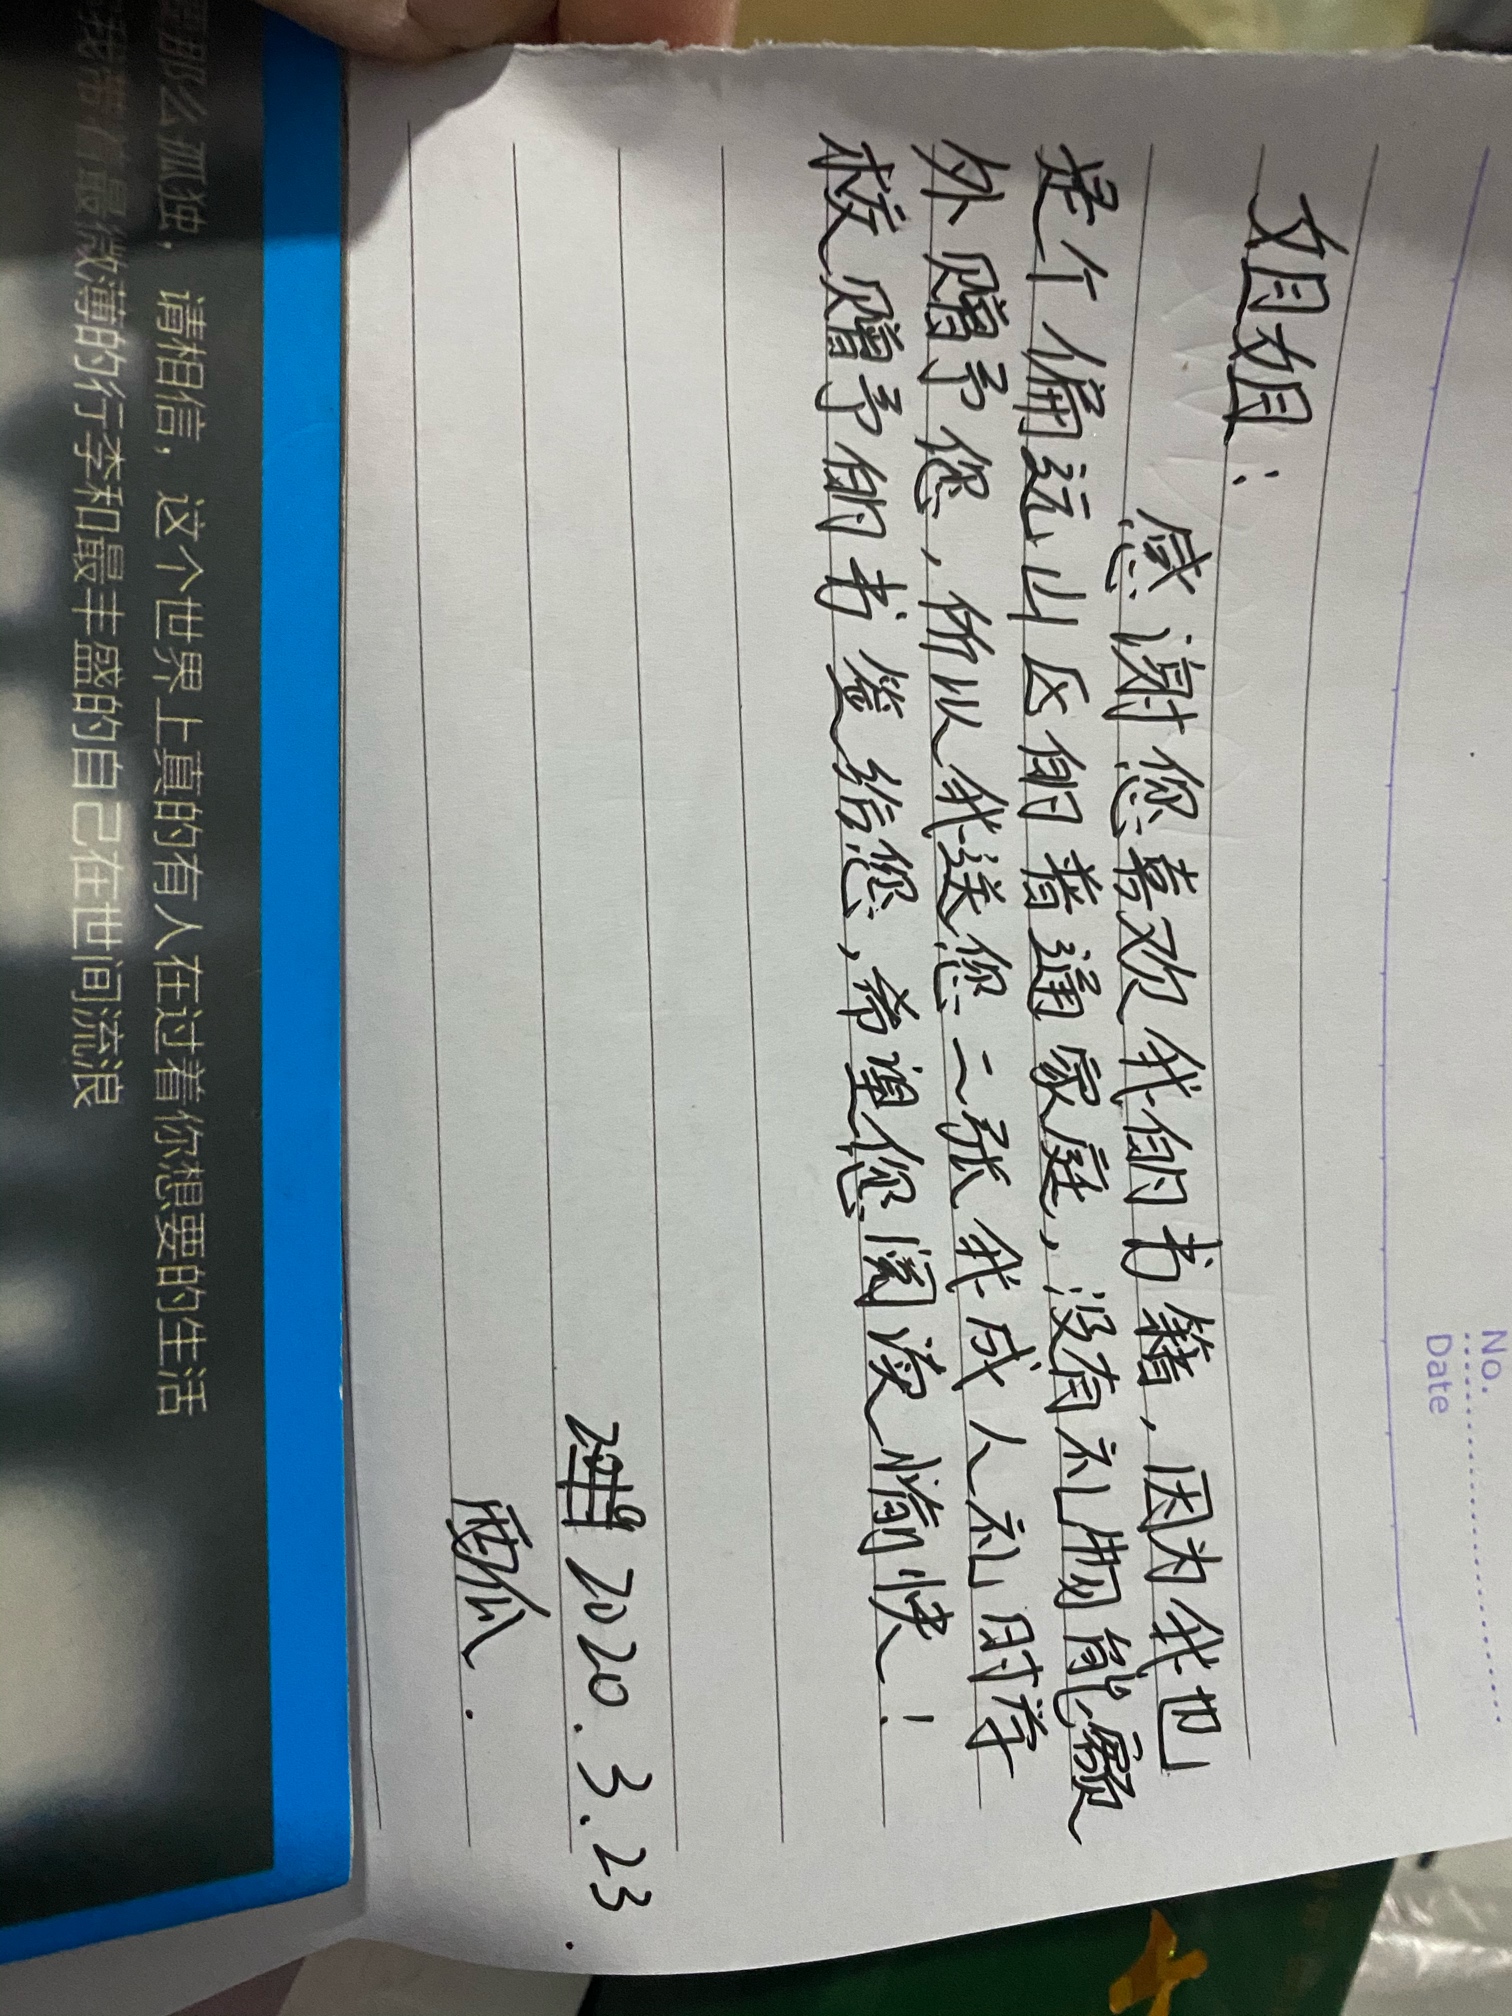 No.
Date
姐姐：
感谢您喜欢我的书籍，因为我也
是个偏远山区的普通家庭，没有礼物能额
外赠予您，所以我送您二张我成人礼时学
校赠予的书签给您，希望您阅读愉快！
2020.3.23.
西瓜.
那么孤独，请相信，这个世界上真的有人在过着你想要的生活
我带着最微薄的行李和最丰盛的自己在世间流浪